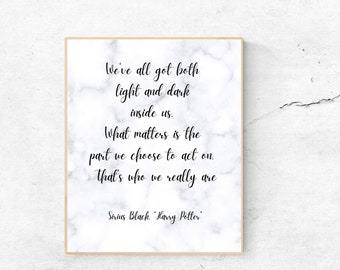 We've all got both
light and dark
inside us.
What matters is the
part we choose to act on.
That's who we really are
Sirius Black, "Harry Potter"